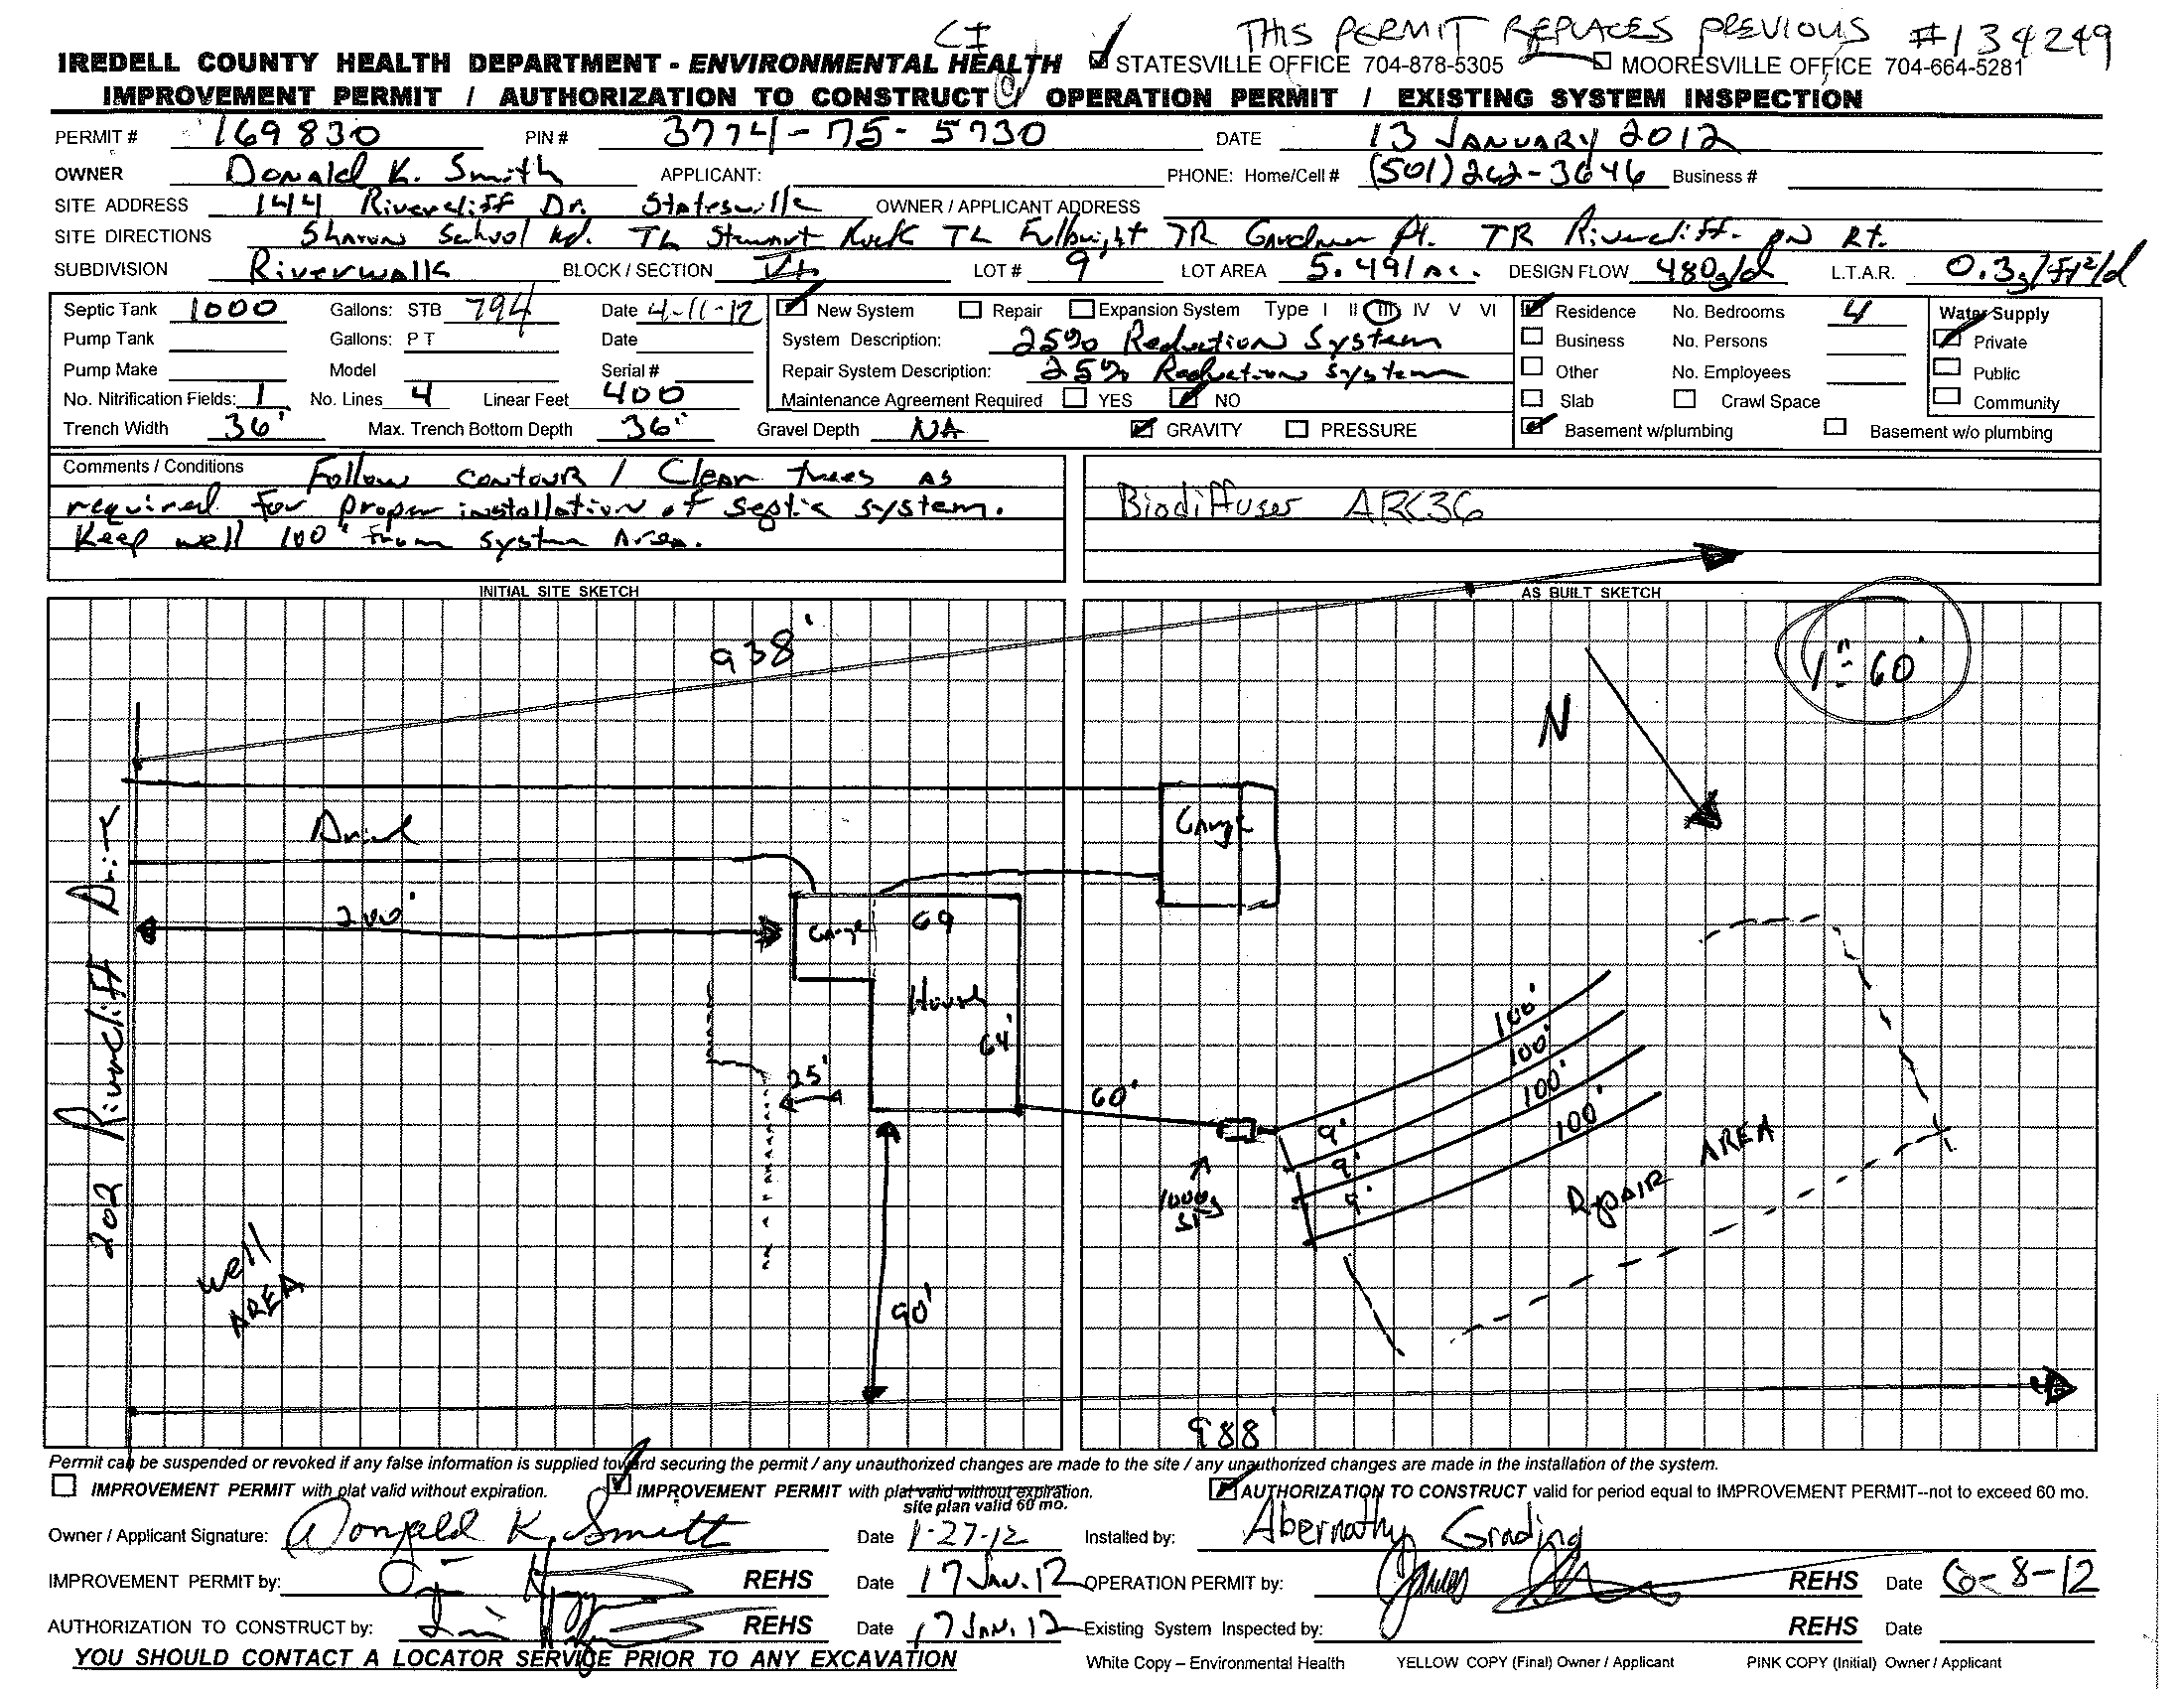 CI THIS PERMIT REPLACES PREVIOUS #134249
IREDELL COUNTY HEALTH DEPARTMENT - ENVIRONMENTAL HEALTH STATESVILLE OFFICE 704-878-5305 MOORESVILLE OFFICE 704-664-5281
IMPROVEMENT PERMIT / AUTHORIZATION TO CONSTRUCT / OPERATION PERMIT / EXISTING SYSTEM INSPECTION
PERMIT # 169830 PIN # 3774-75-5730 DATE 13 January 2012
OWNER Donald K. Smith APPLICANT: PHONE: Home/Cell # (501) 262-3646 Business #
SITE ADDRESS 144 Rivercliff Dr. Statesville OWNER / APPLICANT ADDRESS
SITE DIRECTIONS Sharon School Rd. TL Stewart Rock TL Fulbright TR Gardner Pt. TR Rivercliff on Rt.
SUBDIVISION Riverwalk BLOCK / SECTION LOT # 9 LOT AREA 5.491 ac. DESIGN FLOW 480g/d L.T.A.R. 0.3g/ft²/d
Septic Tank 1000 Gallons: STB 794 Date 4-11-12 New System Repair Expansion System Type I II III IV V VI Residence No. Bedrooms 4 Water Supply
Pump Tank Gallons: PT Date System Description: 25% Reduction System Business No. Persons Private
Pump Make Model Serial # Repair System Description: 25% Reduction System Other No. Employees Public
No. Nitrification Fields: 1 No. Lines 4 Linear Feet 400 Maintenance Agreement Required YES NO Slab Crawl Space Community
Trench Width 36" Max. Trench Bottom Depth 36" Gravel Depth NA GRAVITY PRESSURE Basement w/plumbing Basement w/o plumbing
Comments / Conditions Follow contour / Clear trees as
required for proper installation of septic system.
Keep well 100' from system area.
Biodiffuser ARC36
INITIAL SITE SKETCH AS BUILT SKETCH
938'
1" = 60'
N
Drive
Garage
200'
Garage 69
House
64'
25'
60'
100'
100'
100'
100'
9'
9'
9'
1000g
ST
Repair AREA
202 Rivercliff Drive
well
AREA
90'
988'
Permit can be suspended or revoked if any false information is supplied toward securing the permit / any unauthorized changes are made to the site / any unauthorized changes are made in the installation of the system.
IMPROVEMENT PERMIT with plat valid without expiration. IMPROVEMENT PERMIT with plat valid without expiration. AUTHORIZATION TO CONSTRUCT valid for period equal to IMPROVEMENT PERMIT--not to exceed 60 mo.
site plan valid 60 mo.
Owner / Applicant Signature: Donald K. Smith Date 1-27-12 Installed by: Abernathy Grading
IMPROVEMENT PERMIT by: REHS Date 17 Jan. 12 OPERATION PERMIT by: James REHS Date 6-8-12
AUTHORIZATION TO CONSTRUCT by: REHS Date 17 Jan. 12 Existing System Inspected by: REHS Date
YOU SHOULD CONTACT A LOCATOR SERVICE PRIOR TO ANY EXCAVATION White Copy – Environmental Health YELLOW COPY (Final) Owner / Applicant PINK COPY (Initial) Owner / Applicant